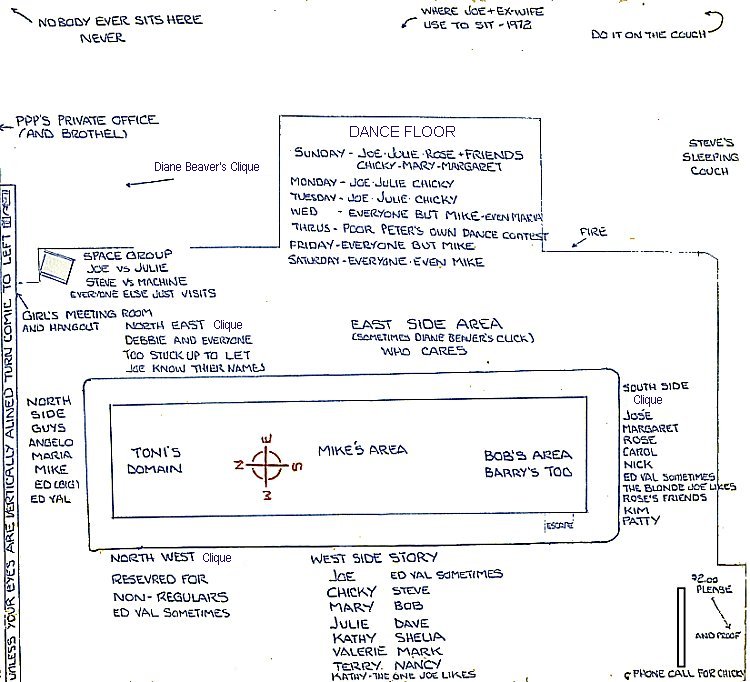 NOBODY EVER SITS HERE
NEVER
WHERE JOE + EX-WIFE
USE TO SIT - 1972
DO IT ON THE COUCH
PPP'S PRIVATE OFFICE
(AND BROTHEL)
Diane Beaver's Clique
DANCE FLOOR
SUNDAY - JOE-JULIE-ROSE + FRIENDS
CHICKY-MARY-MARGARET
MONDAY - JOE-JULIE CHICKY
TUESDAY - JOE-JULIE-CHICKY
WED - EVERYONE BUT MIKE-EVEN MARIA
THRUS - POOR PETER'S OWN DANCE CONTEST
FRIDAY - EVERYONE BUT MIKE
SATURDAY - EVERYONE-EVEN MIKE
STEVE'S
SLEEPING
COUCH
FIRE
SPACE GROUP
JOE VS JULIE
STEVE VS MACHINE
EVERYONE ELSE JUST VISITS
GIRL'S MEETING ROOM
AND HANGOUT
NORTH EAST Clique
DEBBIE AND EVERYONE
TOO STUCK UP TO LET
JOE KNOW THIER NAMES
EAST SIDE AREA
(SOMETIMES DIANE BEAVER'S CLICK)
WHO CARES
UNLESS YOUR EYES ARE VERTICALLY ALINED TURN COMIC TO LEFT
NORTH
SIDE
GUYS
ANGELO
MARIA
MIKE
ED (BIG)
ED VAL
TONI'S
DOMAIN
E
N
S
W
MIKE'S AREA
BOB'S AREA
BARRY'S TOO
ESCAPE
SOUTH SIDE
Clique
JOSE
MARGARET
ROSE
CAROL
NICK
ED VAL SOMETIMES
THE BLONDE JOE LIKES
ROSE'S FRIENDS
KIM
PATTY
NORTH WEST Clique
RESEVRED FOR
NON-REGULARS
ED VAL SOMETIMES
WEST SIDE STORY
JOE ED VAL SOMETIMES
CHICKY STEVE
MARY BOB
JULIE DAVE
KATHY SHELIA
VALERIE MARK
TERRY NANCY
KATHY-THE ONE JOE LIKES
$2.00
PLEASE
AND PROOF
PHONE CALL FOR CHICKY